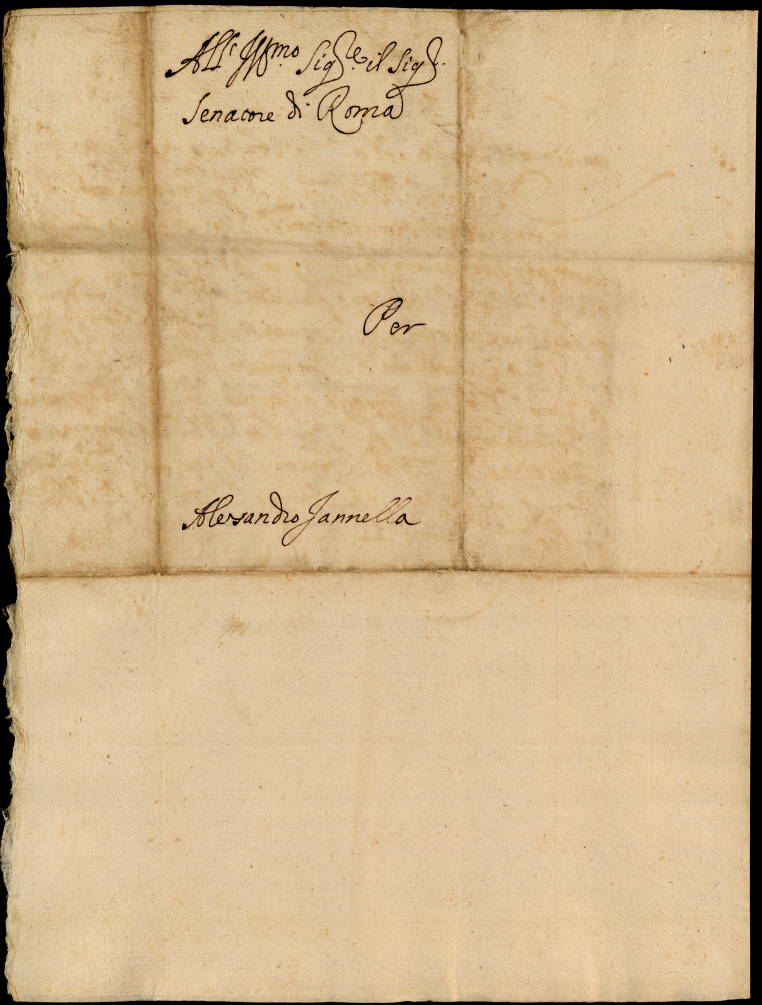 All' Ill.mo Sig.re il Sig.
Senatore di Roma
Per
Alesandro Jannella